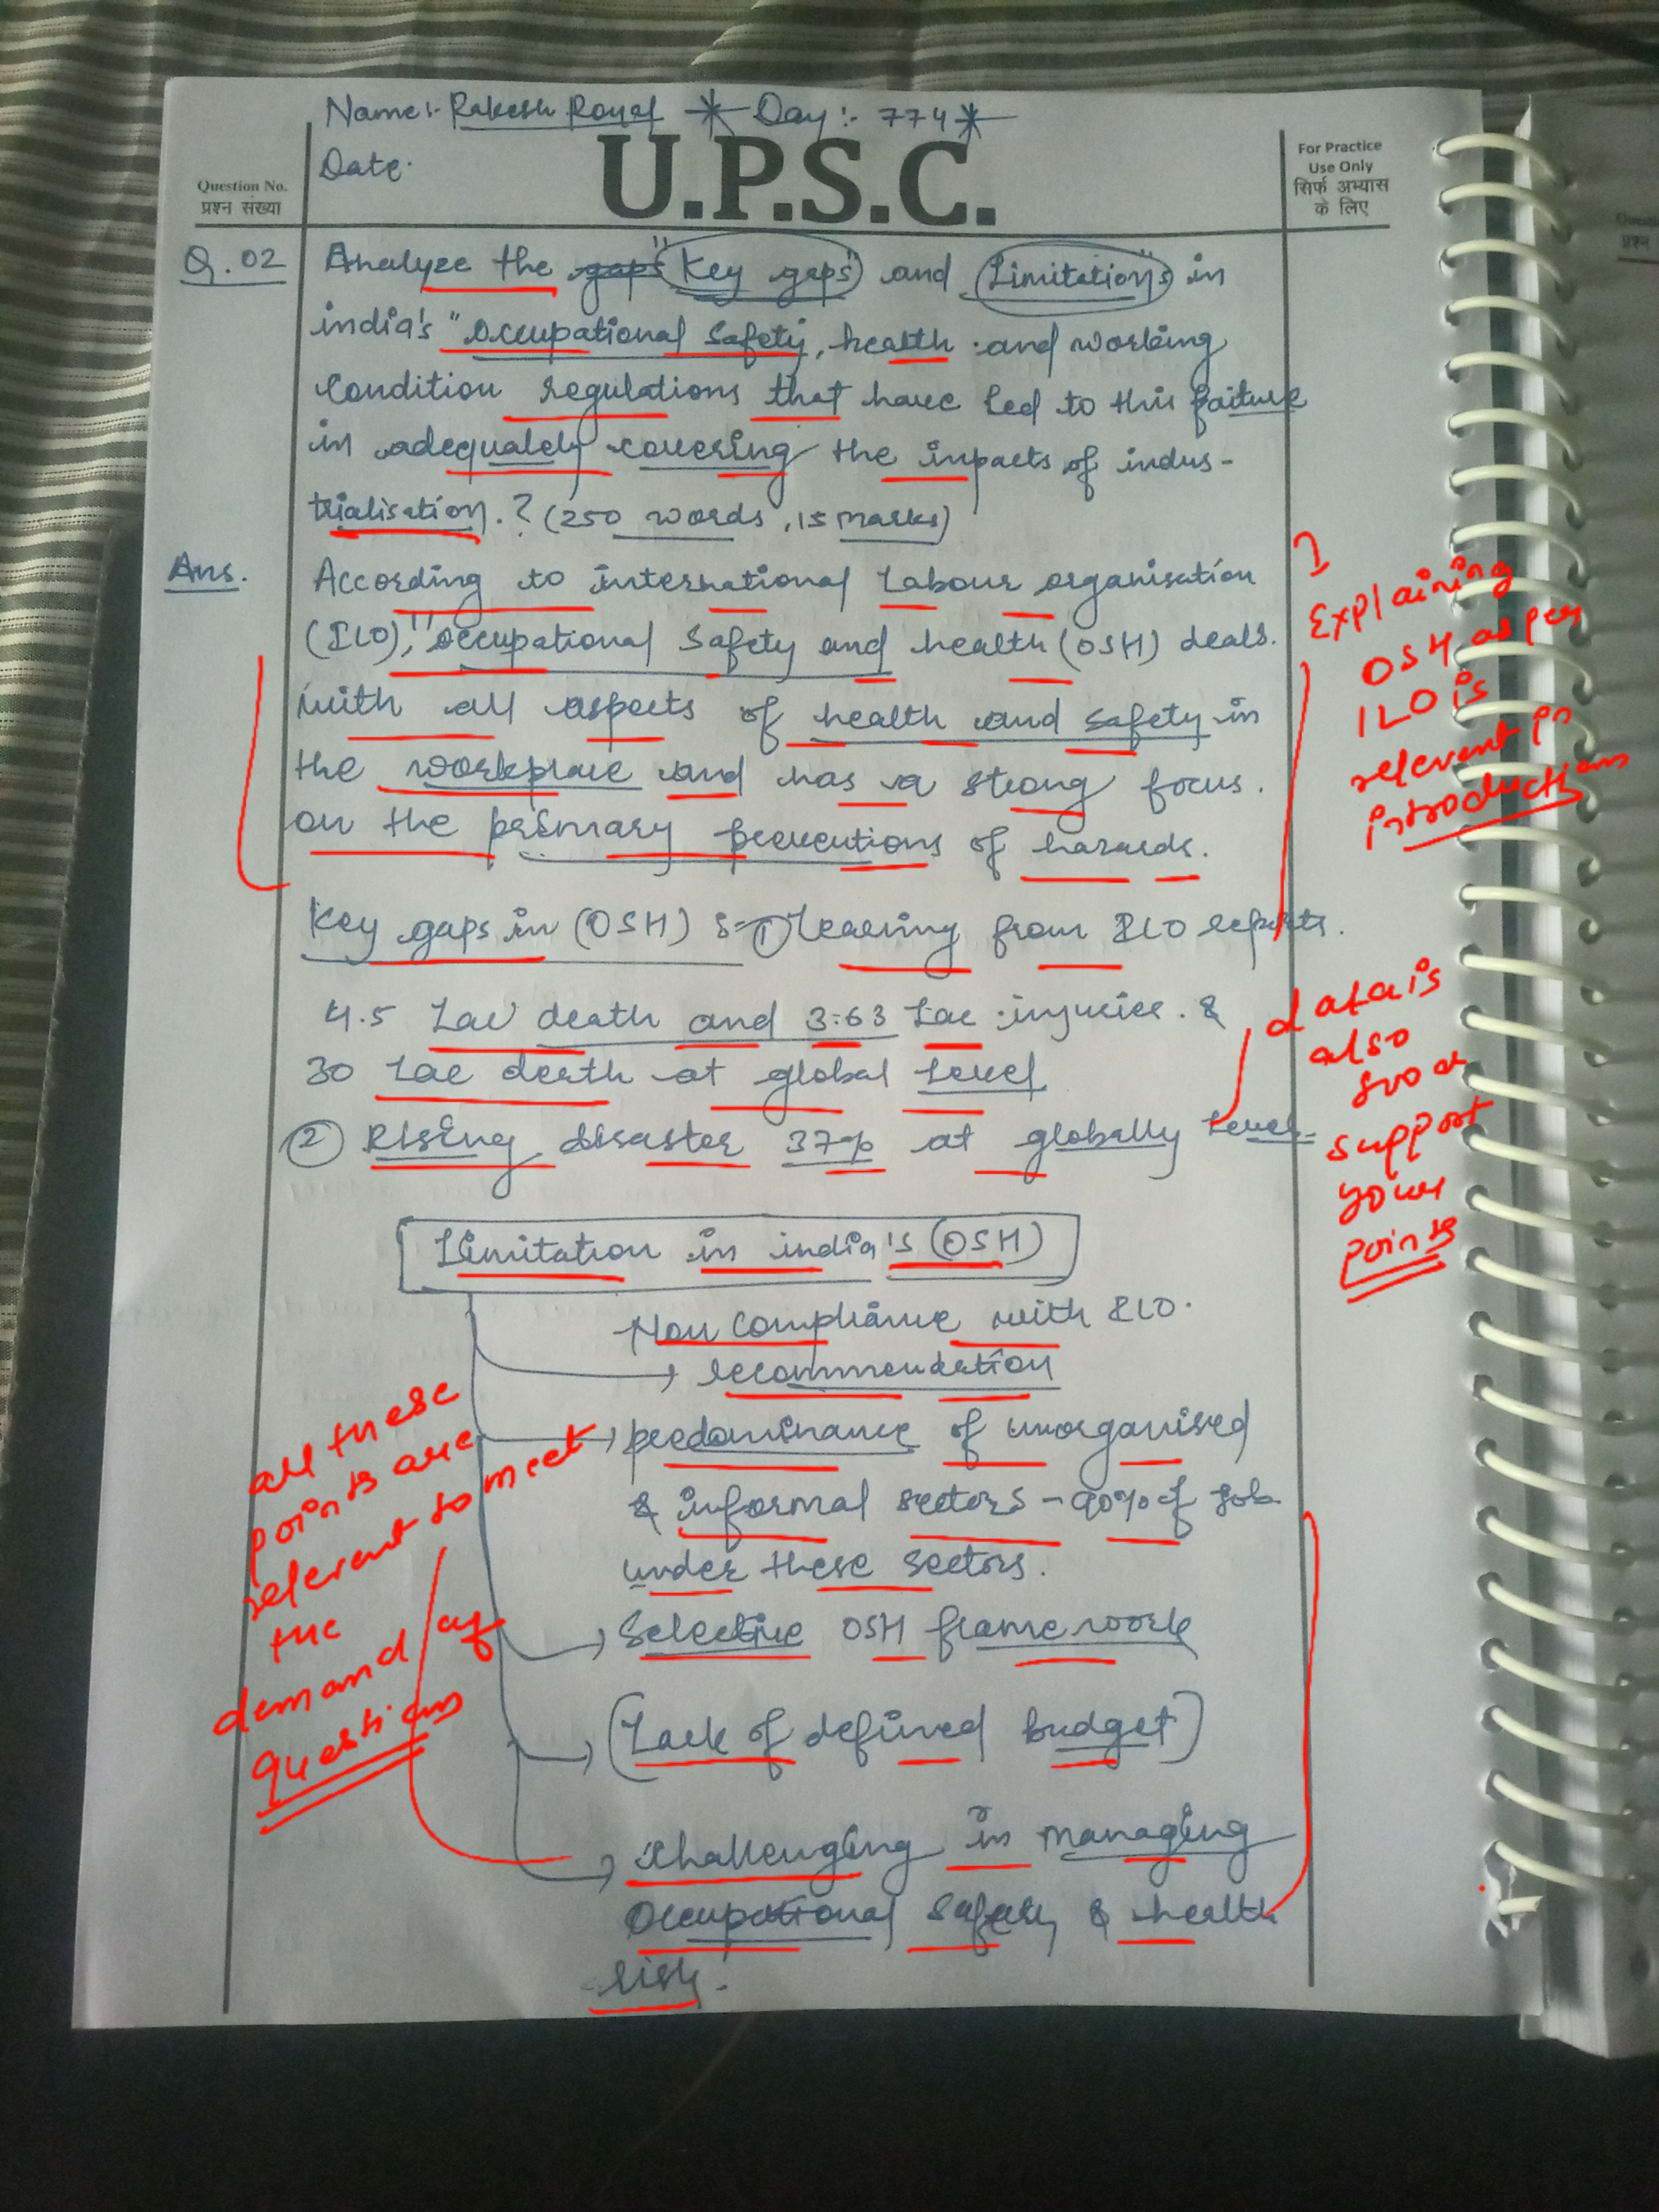 Name:- Rakesh Royal * Day:- 774*
Date.
U.P.S.C.
For Practice
Use Only
सिर्फ अभ्यास
के लिए
Question No.
प्रश्न संख्या
Q.02 Analyze the gaps "Key gaps" and Limitations in
india's "Occupational Safety, health and working
Condition regulations that have led to this failure
in adequately covering the impacts of indus-
trialisation.? (250 words, 15 Marks)
Ans. According to international Labour organisation
(ILO), "occupational Safety and health (OSH) deals.
with all aspects of health and safety in
the workplace and has a strong focus.
on the primary preventions of hazards.
Explaining
OSH as per
ILO is
relevent in
introduction
Key gaps in (OSH) :- ① Learning from ILO reports.
4.5 Lac death and 3.63 Lac injuries. &
30 Lac death at global Level
② Rising disaster 37% at globally Level.
data is
also
good
support
your
points
Limitation in india's (OSH)
Non compliance with ILO.
→ recommendation
→ predominance of unorganised
& informal sectors - 90% of Job
under these sectors.
→ Selective OSH frame work
→ (Lack of defined budget)
→ challengling in managing
Occupational safety & health
risk.
all these
points are
relevent to meet
the
demand of
question